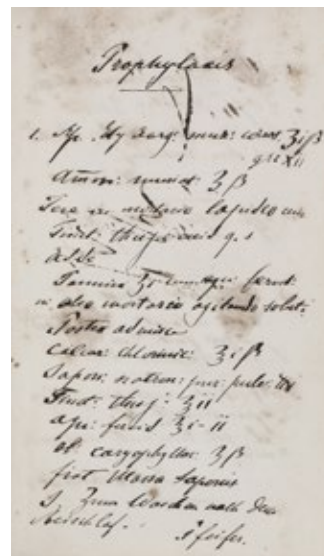 Prophylaxis
1. Rp. Hydrarg: mur: corros ʒiβ
grxii
Amon: muriat ʒβ
Tere in mortario lapideo cum
Tinct: thujae q. s
adde
Tannini ʒi
in alio mortario agitando solut:
Postea admisce
Calcar: chlorinic: ʒiβ
Sapon: natron: pur: pulv:
Tinct: thuj: ʒii
aqu: ʒi-ii
ol. caryophyllor ʒβ
fiat Massa saponis
S. Zum Waschen nach dem
Beischlaf.
Pfeifer.